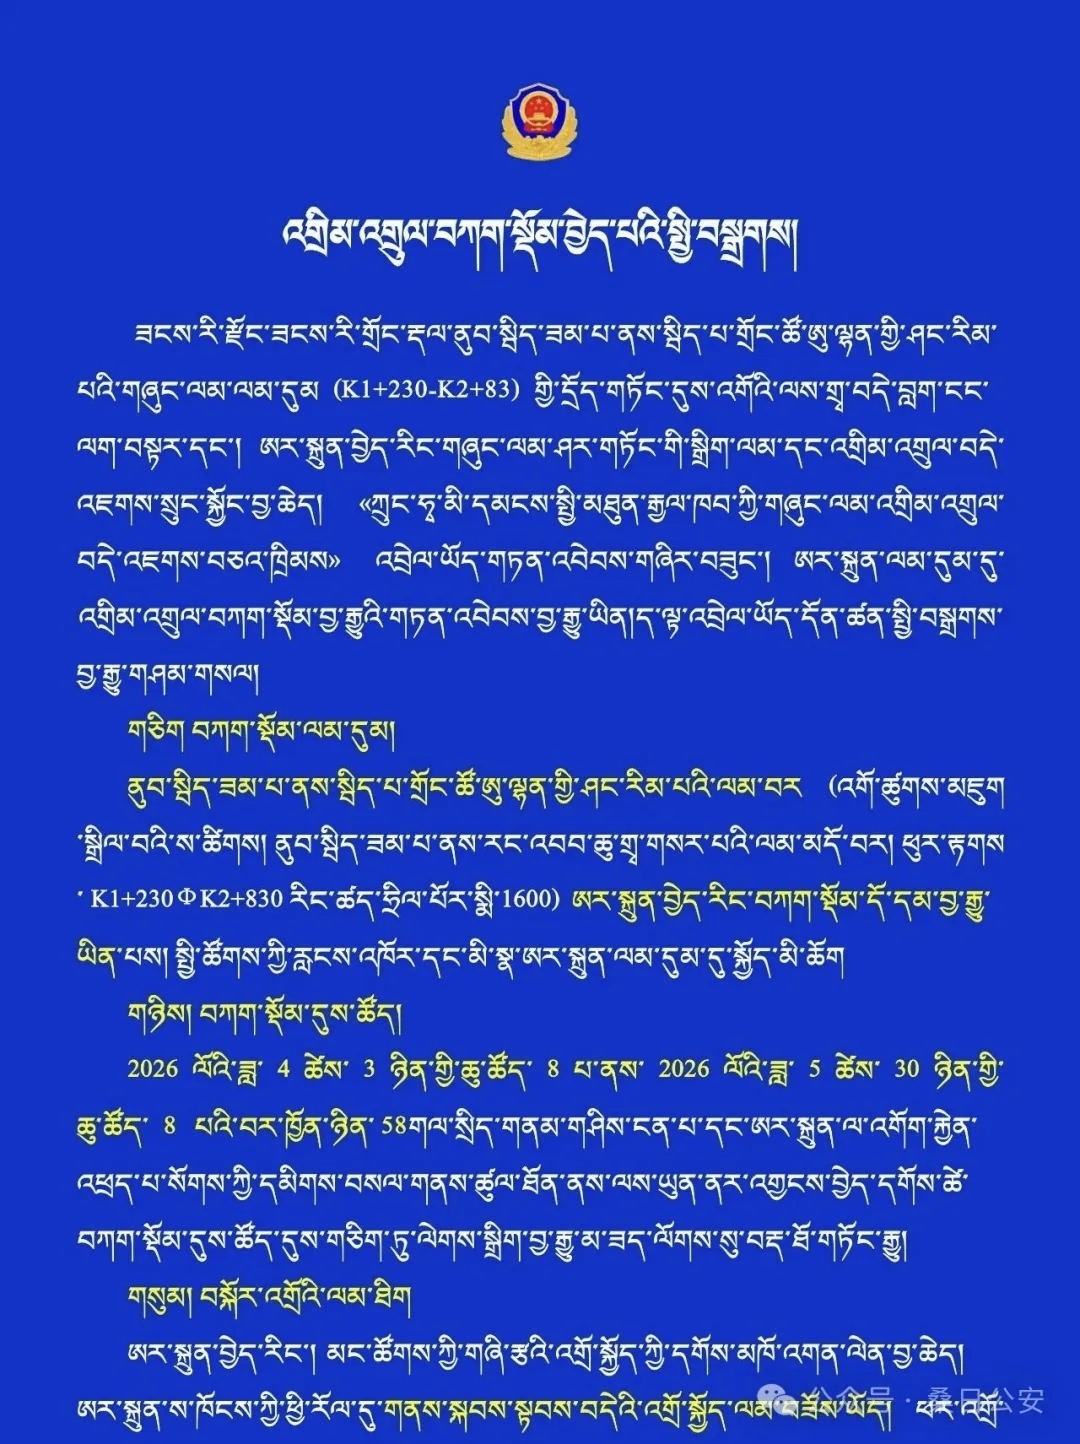 འགྲིམ་འགྲུལ་བཀག་སྡོམ་བྱེད་པའི་སྤྱི་བསྒྲགས།
ཟངས་རི་རྫོང་ཟངས་རི་གྲོང་རྡལ་ནུབ་སྲིད་ཟམ་པ་ནས་སྲིད་པ་གྲོང་ཚོ་ཨུ་ལྷན་གྱི་ཤང་རིམ་
པའི་གཞུང་ལམ་ལམ་དུམ (K1+230-K2+83) གྱི་དྲོད་གཏོང་དུས་འགོའི་ལས་གྲྭ་བདེ་བླག་ངང་
ལག་བསྟར་དང་། ཨར་སྐྲུན་བྱེད་རིང་གཞུང་ལམ་ཤར་གཏོང་གི་སྒྲིག་ལམ་དང་འགྲིམ་འགྲུལ་བདེ་
འཇགས་སྲུང་སྐྱོང་བྱ་ཆེད། «ཀྲུང་ཧྭ་མི་དམངས་སྤྱི་མཐུན་རྒྱལ་ཁབ་ཀྱི་གཞུང་ལམ་འགྲིམ་འགྲུལ་
བདེ་འཇགས་བཅའ་ཁྲིམས» འབྲེལ་ཡོད་གཏན་འབེབས་གཞིར་བཟུང་། ཨར་སྐྲུན་ལམ་དུམ་དུ་
འགྲིམ་འགྲུལ་བཀག་སྡོམ་བྱ་རྒྱུའི་གཏན་འབེབས་བྱ་རྒྱུ་ཡིན།ད་ལྟ་འབྲེལ་ཡོད་དོན་ཚན་སྤྱི་བསྒྲགས་
བྱ་རྒྱུ་གཤམ་གསལ།
གཅིག བཀག་སྡོམ་ལམ་དུམ།
ནུབ་སྲིད་ཟམ་པ་ནས་སྲིད་པ་གྲོང་ཚོ་ཨུ་ལྷན་གྱི་ཤང་རིམ་པའི་ལམ་བར (འགོ་ཚུགས་མཇུག
་སྒྲིལ་བའི་ས་ཚིགས། ནུབ་སྲིད་ཟམ་པ་ནས་རང་འབབ་ཆུ་གྲྭ་གསར་པའི་ལམ་མདོ་བར། ཕུར་རྟགས
་K1+230ΦK2+830 རིང་ཚད་ཧྲིལ་པོར་སྨི་1600) ཨར་སྐྲུན་བྱེད་རིང་བཀག་སྡོམ་དོ་དམ་བྱ་རྒྱུ་
ཡིན་པས། སྤྱི་ཚོགས་ཀྱི་རླངས་འཁོར་དང་མི་སྣ་ཨར་སྐྲུན་ལམ་དུམ་དུ་སྐྱོད་མི་ཆོག
གཉིས། བཀག་སྡོམ་དུས་ཚོད།
2026 ལོའི་ཟླ་ 4 ཚེས་ 3 ཉིན་གྱི་ཆུ་ཚོད་ 8 པ་ནས་ 2026 ལོའི་ཟླ་ 5 ཚེས་ 30 ཉིན་གྱི་
ཆུ་ཚོད་ 8 པའི་བར་ཁྱོན་ཉིན་58གལ་སྲིད་གནམ་གཤིས་ངན་པ་དང་ཨར་སྐྲུན་ལ་འགོག་རྐྱེན་
འཕྲད་པ་སོགས་ཀྱི་དམིགས་བསལ་གནས་ཚུལ་ཐོན་ནས་ལས་ཡུན་ནར་འགྱངས་བྱེད་དགོས་ཚེ་
བཀག་སྡོམ་དུས་ཚོད་དུས་གཅིག་ཏུ་ལེགས་སྒྲིག་བྱ་རྒྱུ་མ་ཟད་ལོགས་སུ་བརྡ་ཐོ་གཏོང་རྒྱུ།
གསུམ། བསྐོར་འགྲོའི་ལམ་ཐིག
ཨར་སྐྲུན་བྱེད་རིང་། མང་ཚོགས་ཀྱི་གཞི་རྩའི་འགྲོ་སྐྱོད་ཀྱི་དགོས་མཁོ་འགན་ལེན་བྱ་ཆེད།
ཨར་སྐྲུན་ས་ཁོངས་ཀྱི་ཕྱི་རོལ་དུ་གནས་སྐབས་སྟབས་བདེའི་འགྲོ་སྐྱོད་ལམ་བཟོས་ཡོད། ཕར་འགྲོ་
公众号·桑日公安